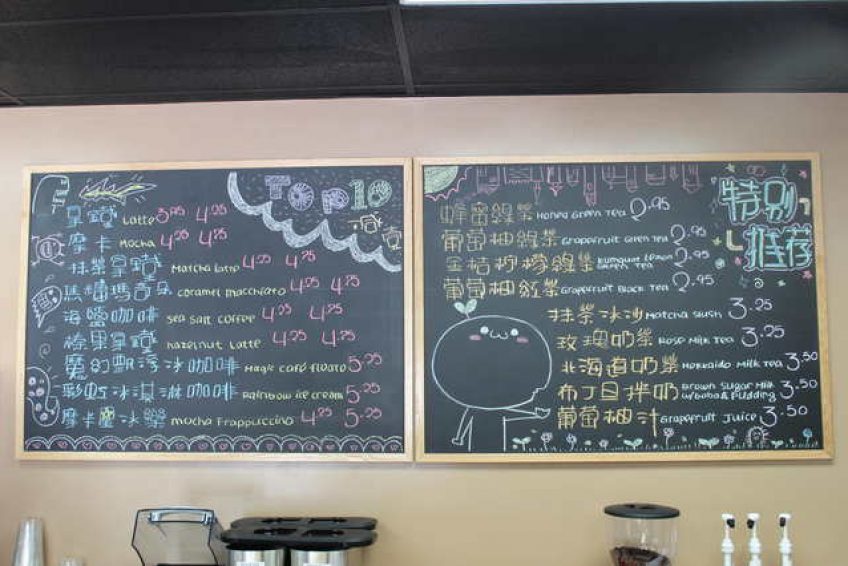 Top10
拿鐵 Latte 3.95 4.25
摩卡 Mocha 4.25 4.75
抹茶拿鐵 Matcha Latte 4.25 4.75
焦糖瑪奇朵 caramel macchiato 4.25 4.75
海鹽咖啡 sea salt coffee 4.25 4.75
榛果拿鐵 hazelnut Latte 4.25 4.75
魔幻飄浮冰咖啡 Magic café floats 5.25
彩虹冰淇淋咖啡 Rainbow ice cream 5.25
摩卡 冰樂 mocha Frappuccino 4.75 5.25
特別推荐
蜂蜜綠茶 Honey Green Tea 2.95
葡萄柚綠茶 Grapefruit Green Tea 2.95
金桔柠檬綠茶 Kumquat Lemon Green Tea 2.95
葡萄柚紅茶 Grapefruit Black Tea 2.95
抹茶冰沙 Matcha slush 3.25
玫瑰奶茶 Rose Milk Tea 3.25
北海道奶茶 Hokkaido Milk Tea 3.50
布丁 拌奶 Brown Sugar Milk w/Boba & Pudding 3.50
葡萄柚汁 Grapefruit Juice 3.50